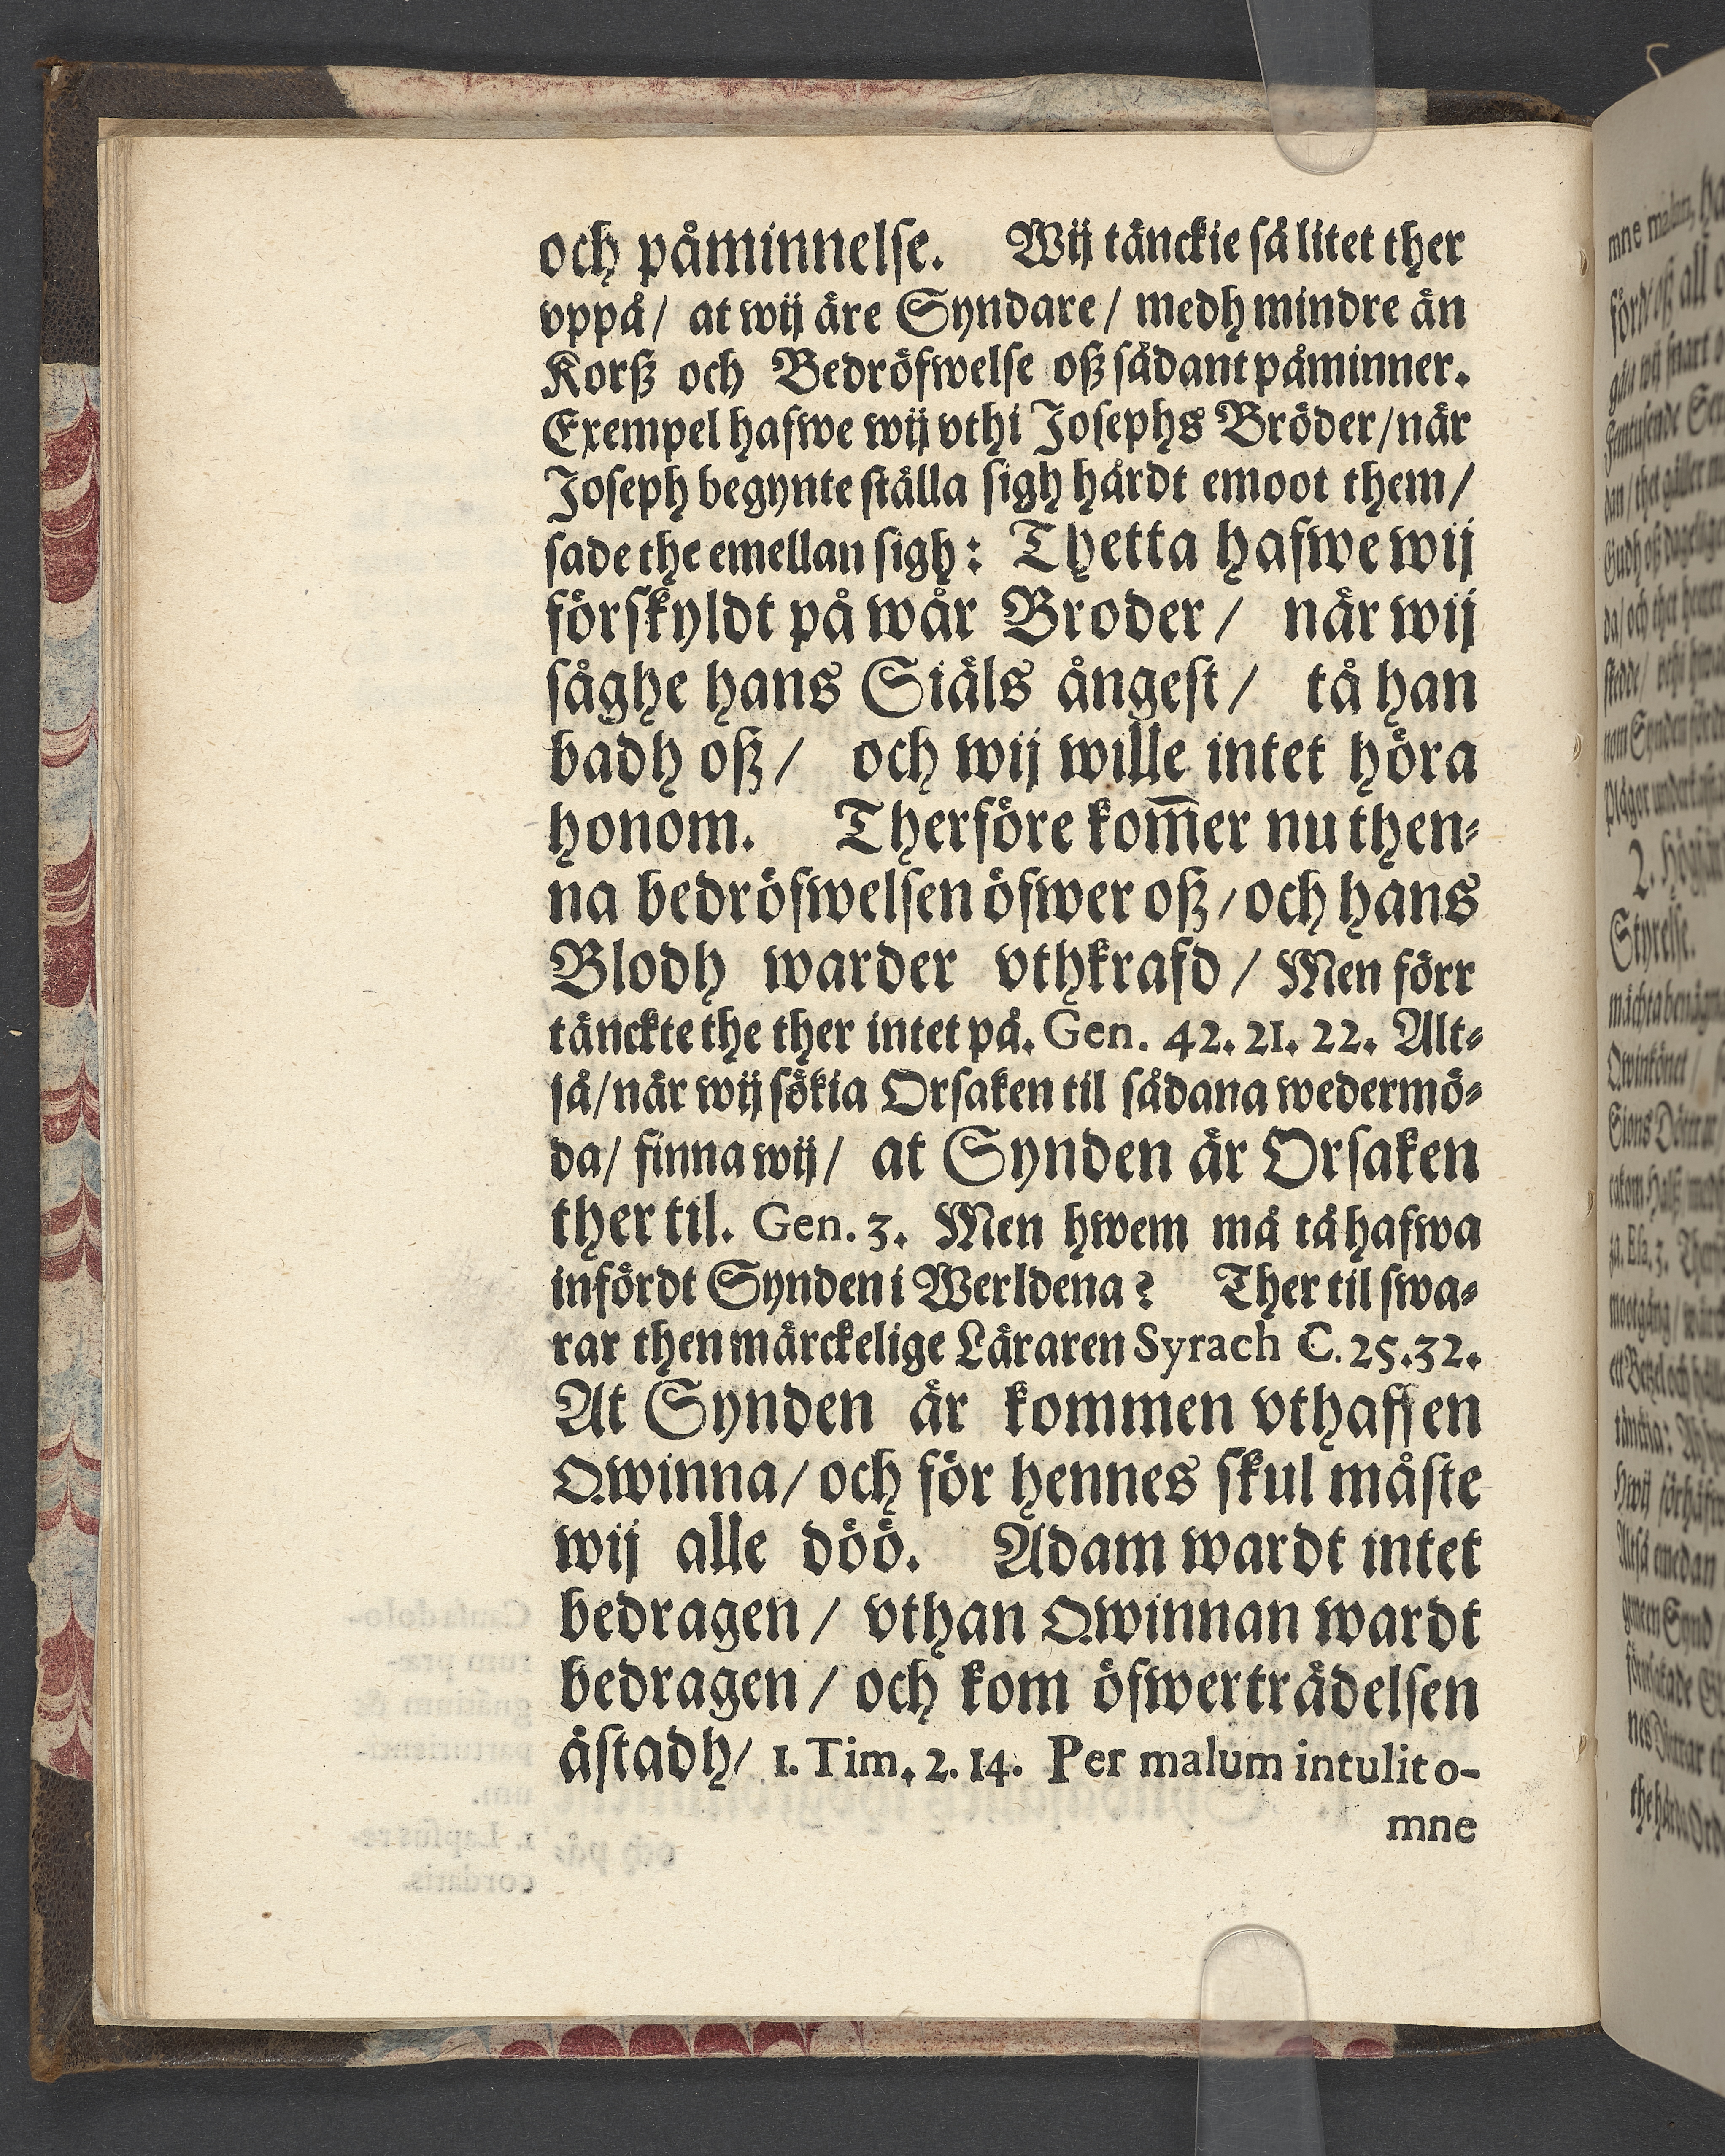 och påminnelse. Wij tänckie så litet ther
vppå/ at wij äre Syndare/ medh mindre än
Korß och Bedröfwelse oß sådant påminner.
Exempel hafwe wij vthi Josephs Bröder/när
Joseph begynte ställa sigh hårdt emoot them/
sade the emellan sigh: Thetta hafwe wij
förskyldt på wår Broder/ när wij
såghe hans Siäls ångest/ tå han
badh oß/ och wij wille intet höra
honom. Therföre kom̅er nu then⸗
na bedröfwelsen öfwer oß/och hans
Blodh warder vthkrafd/ Men förr
tänckte the ther intet på. Gen. 42. 21. 22. Alt⸗
så/när wij sökia Orsaken til sådana wedermö⸗
da/ finna wij/ at Synden är Orsaken
ther til. Gen. 3. Men hwem må tå hafwa
infördt Synden i Werldena? Ther til swa⸗
rar then märckelige Läraren Syrach C. 25.32.
At Synden är kommen vthaff en
Qwinna/och för hennes skul måste
wij alle döö. Adam wardt intet
bedragen/ vthan Qwinnan wardt
bedragen/ och kom öfwerträdelsen
åstadh/ 1. Tim. 2. 14. Per malum intulit o-
mne
mne malum,
2.
Styrelse.